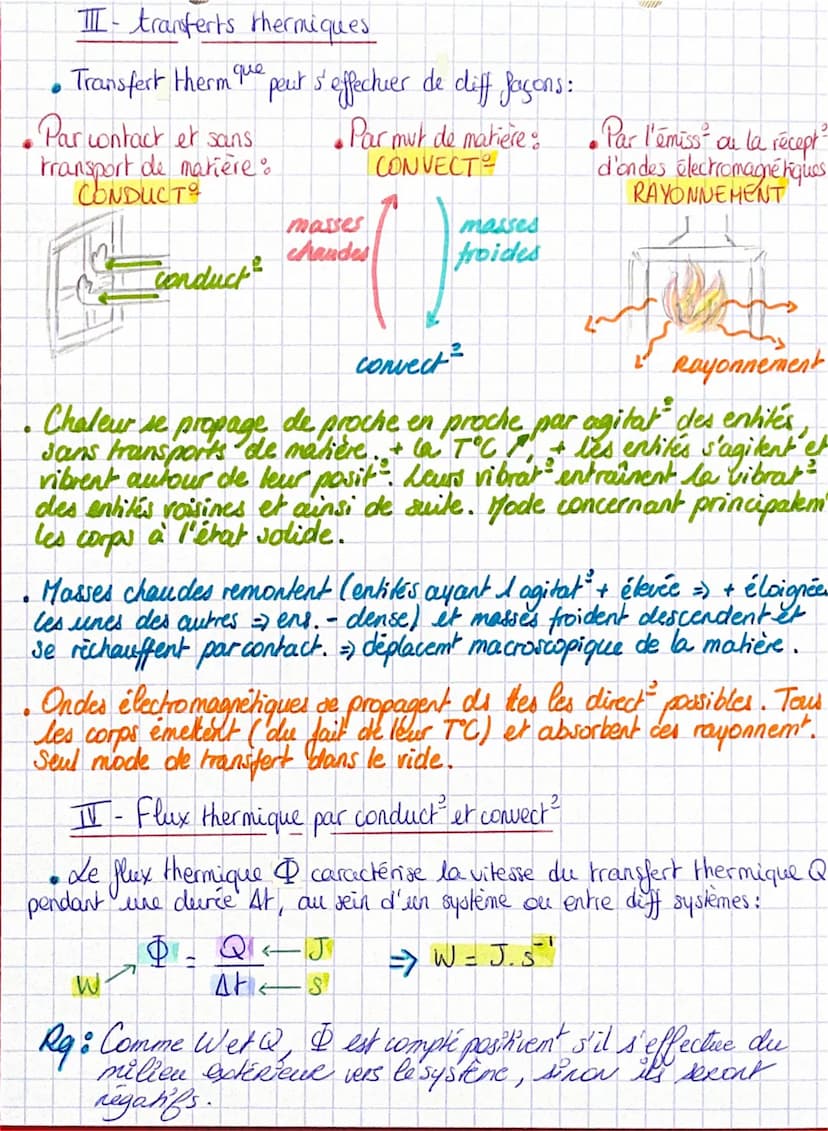 III - tranferts thermiques
• Transfert therm^que peut s'effectuer de diff façons:
• Par contact et sans
transport de matière :
CONDUCT°
• Par mvt de matière :
CONVECT°
• Par l'émiss° ou la récept°
d'ondes électromagnétiques
RAYONNEMENT
conduct°
masses
chaudes
masses
froides
convect°
Rayonnement
• Chaleur se propage de proche en proche par agitat° des entités,
sans transports de matière. + la T°C ↗, + les entités s'agitent et
vibrent autour de leur posit°. Leurs vibrat° entraînent la vibrat°
des entités voisines et ainsi de suite. Mode concernant principalem
les corps à l'état solide.
• Masses chaudes remontent (entités ayant 1 agitat° + élevée => + éloignées
les unes des autres => ens. - dense) et masses froident descendent et
se réchauffent par contact. => déplacem^t macroscopique de la matière.
• Ondes électromagnétiques se propagent ds ttes les direct° possibles. Tous
les corps émettent (du fait de leur T°C) et absorbent ces rayonnem^t.
Seul mode de transfert dans le vide.
IV - Flux thermique par conduct° et convect°
• Le flux thermique Φ caractérise la vitesse du transfert thermique Q
pendant une durée Δt, au sein d'un système ou entre diff systèmes :
W → Φ = Q ← J / Δt ← S => W = J.s^-1
Rq : Comme W et Q, Φ est compté positivem^t s'il s'effectue du
milieu extérieur vers le système, sinon ils seront
négatifs.